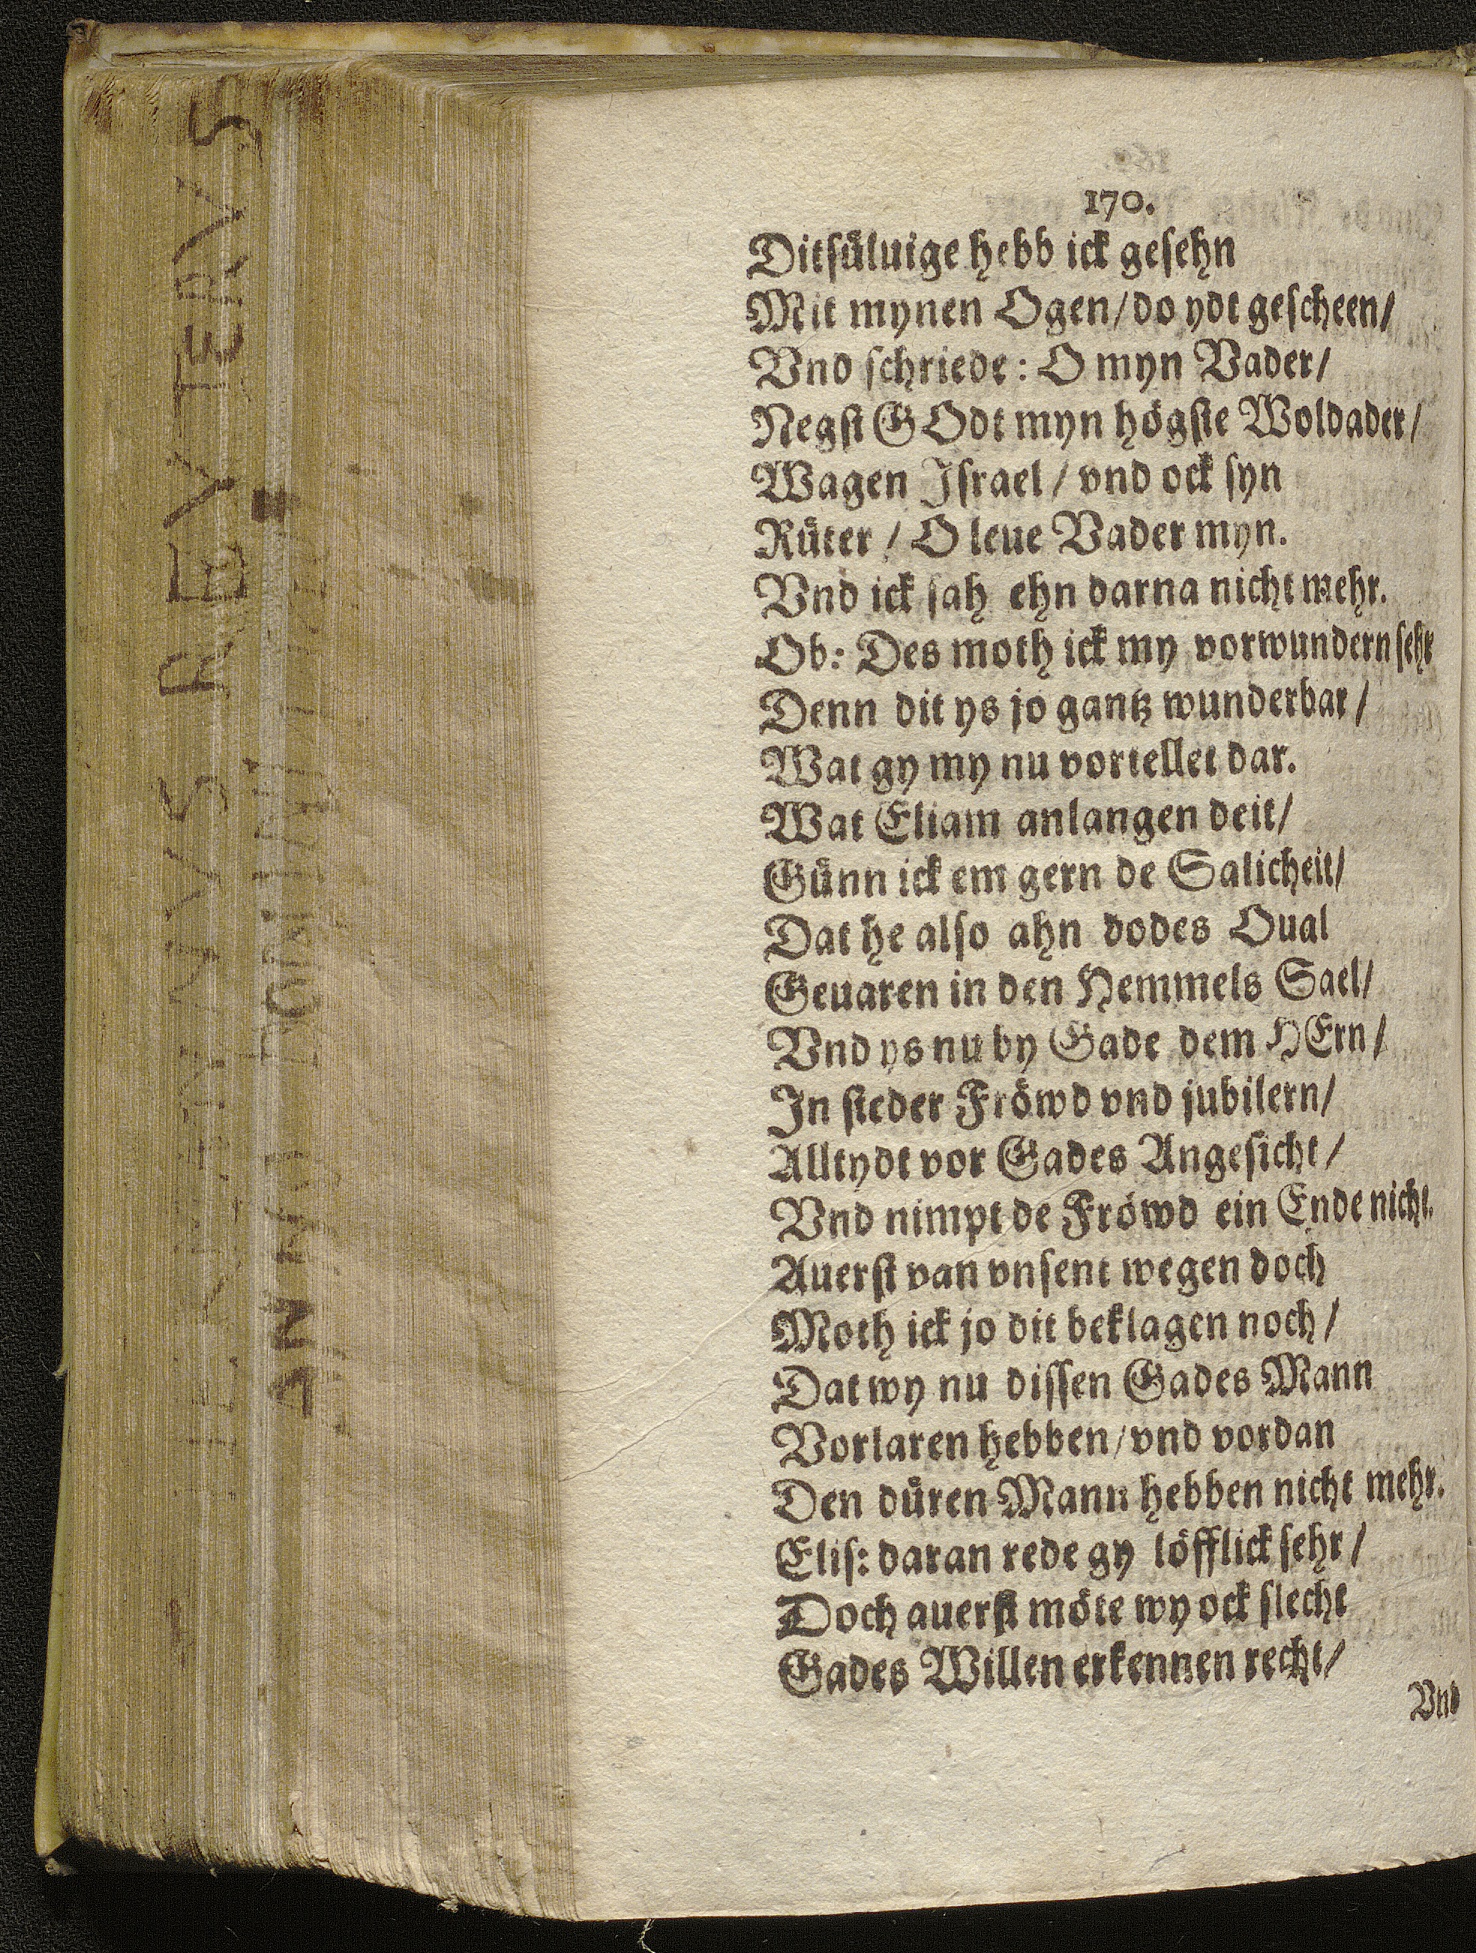 170.
Ditsüluige hebb ick gesehn
Mit mynen Ogen/do ydt gescheen/
Vnd schriede: O myn Vader/
Negst GOdt myn högste Woldader/
Wagen Israel/ vnd ock syn
Rüter / O leue Vader myn.
Vnd ick sah ehn darna nicht mehr.
Ob: Des moth ick my vorwundern sehr
Denn dit ys jo gantz wunderbar/
Wat gy my nu vortellet dar.
Wat Eliam anlangen deit/
Günn ick em gern de Salicheit/
Dat he also ahn dodes Qual
Geuaren in den Hemmels Sael/
Vnd ys nu by Gade dem HErn/
In steder Fröwd vnd jubilern/
Alltydt vor Gades Angesicht/
Vnd nimpt de Fröwd ein Ende nicht.
Auerst van vnsent wegen doch
Moth ick jo dit beklagen noch/
Dat wy nu dissen Gades Mann
Vorlaren hebben/vnd vordan
Den düren Mann hebben nicht mehr.
Elis: daran rede gy löfflick sehr/
Doch auerst möte wy ock slecht
Gades Willen erkennen recht/
Vnd
REVTERVS
ANNO DOMINI